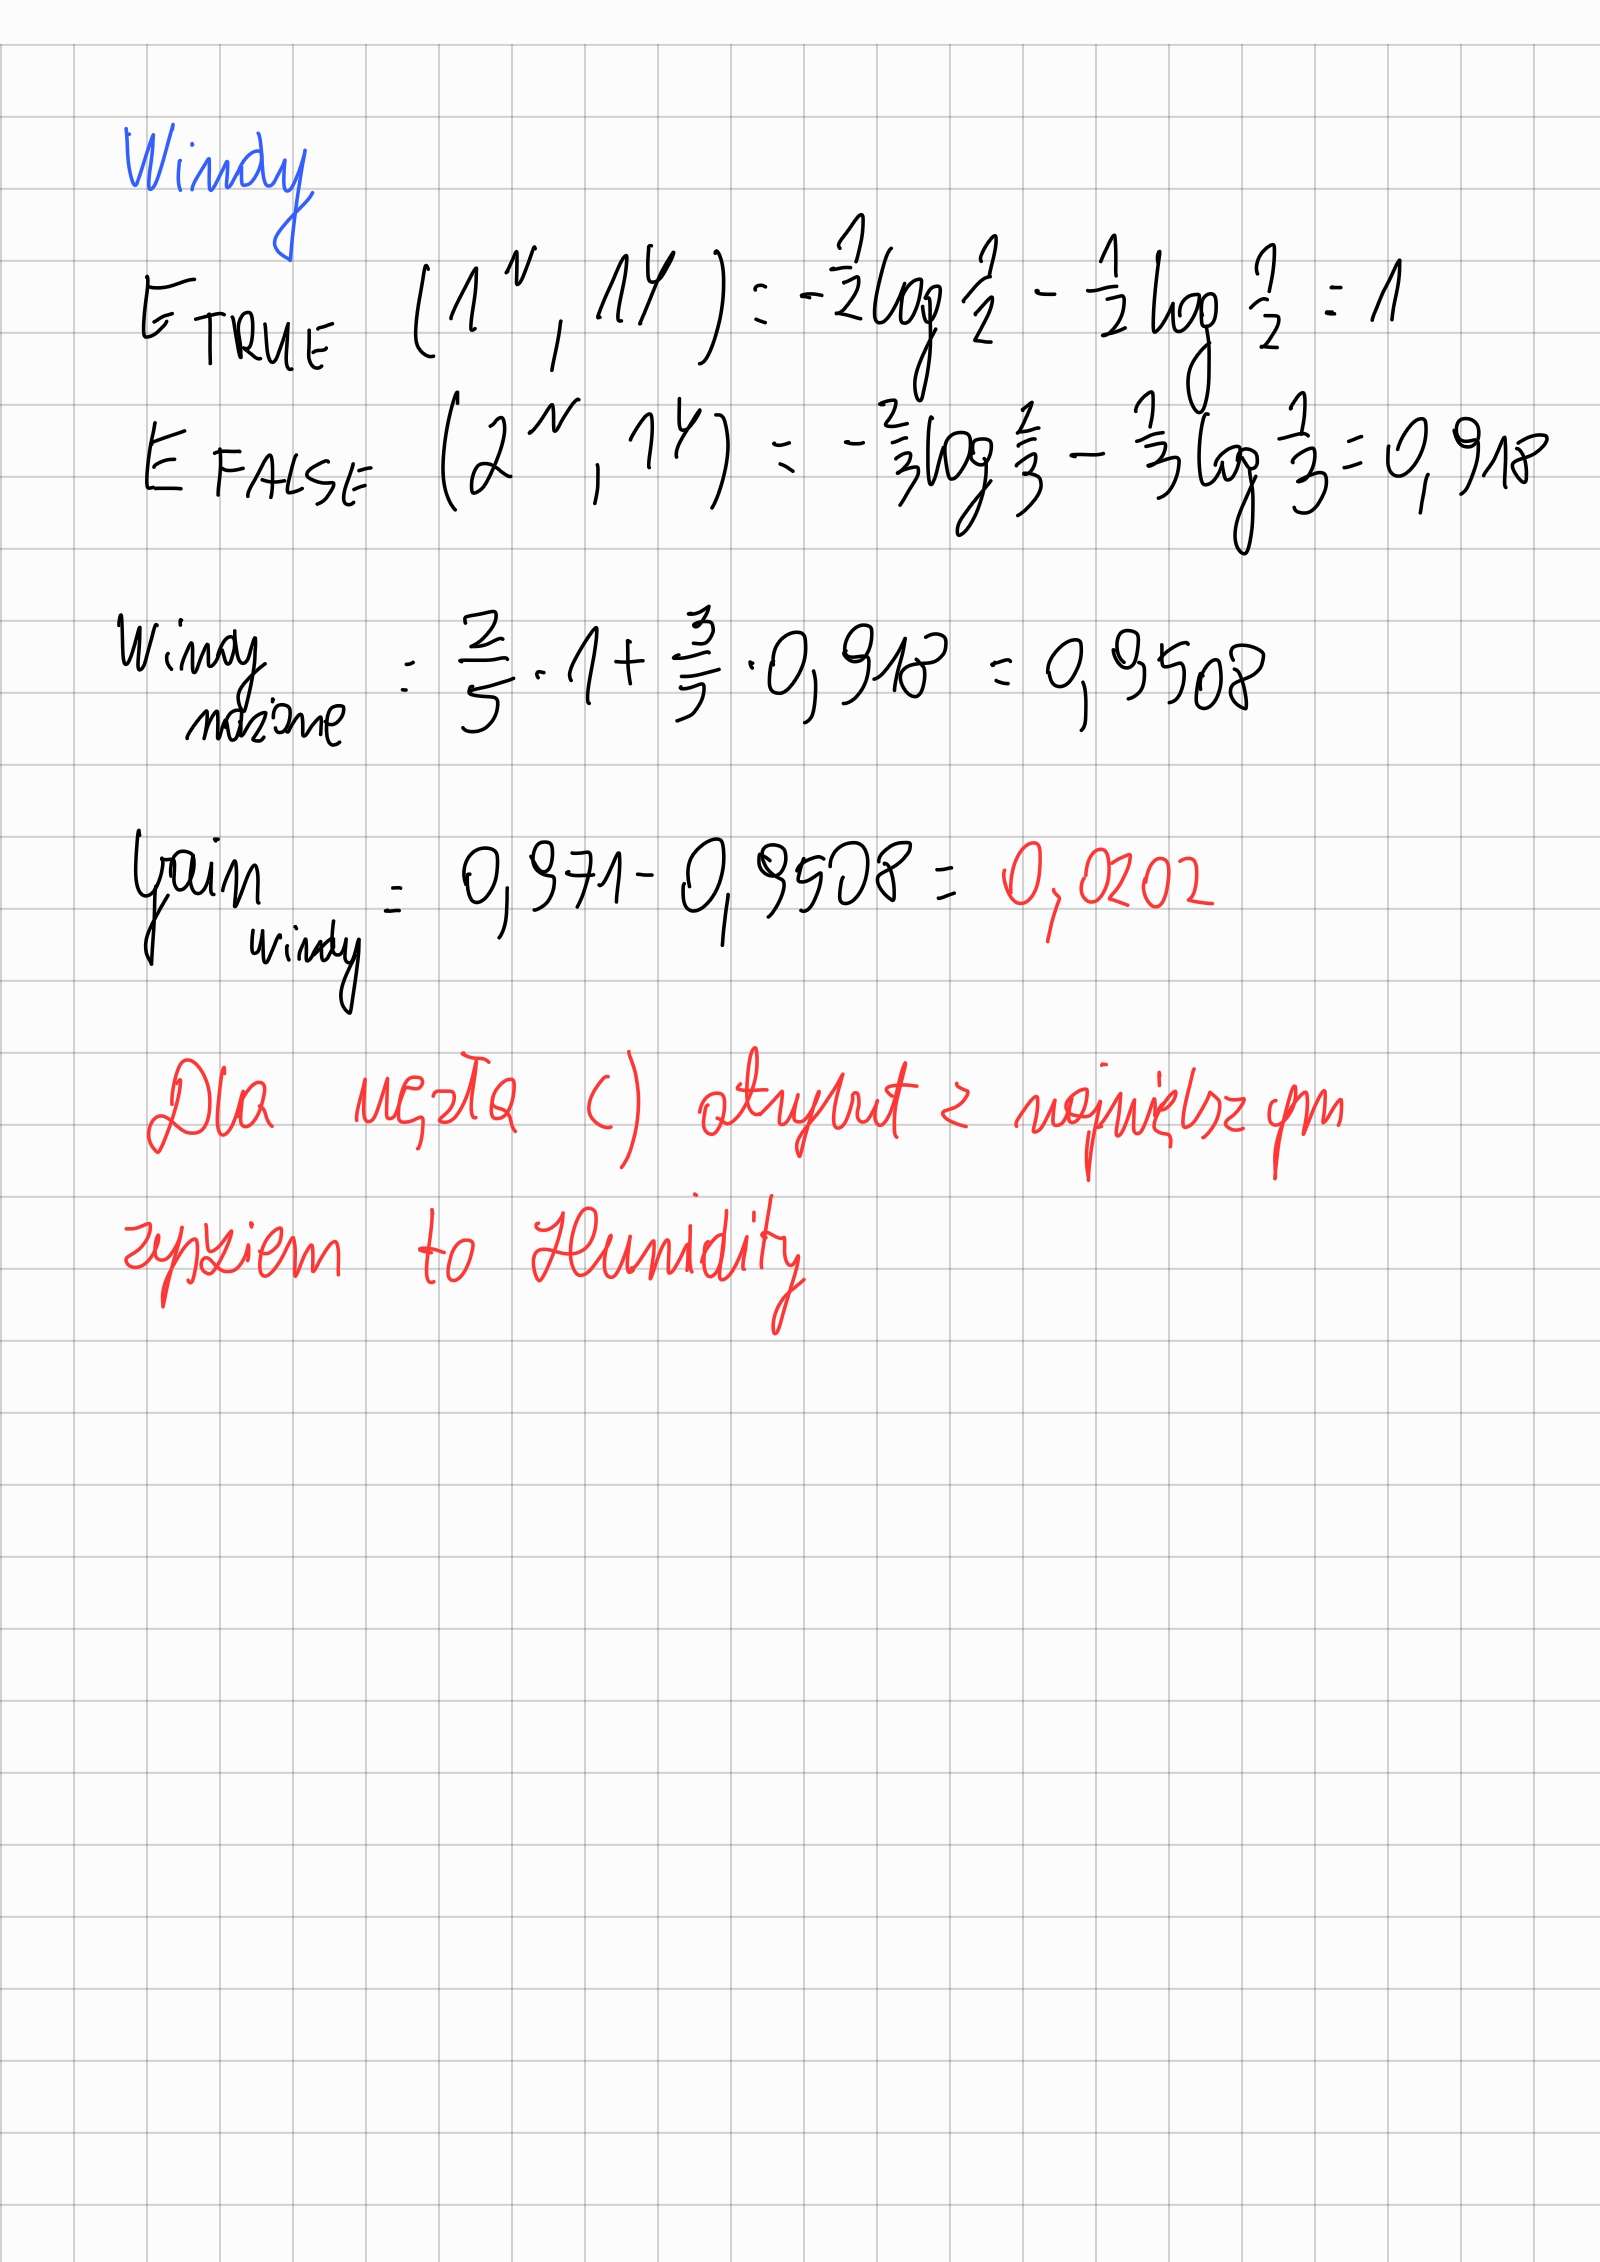 Windy
E TRUE (1^N, 1^Y) = -1/2 log 1/2 - 1/2 log 1/2 = 1
E FALSE (2^N, 1^Y) = -2/3 log 2/3 - 1/3 log 1/3 = 0,918
Windy ważone = 2/5 · 1 + 3/5 · 0,918 = 0,9508
Gain windy = 0,971 - 0,9508 = 0,0202
Dla węzła c) atrybut z największym
zyskiem to Humidity